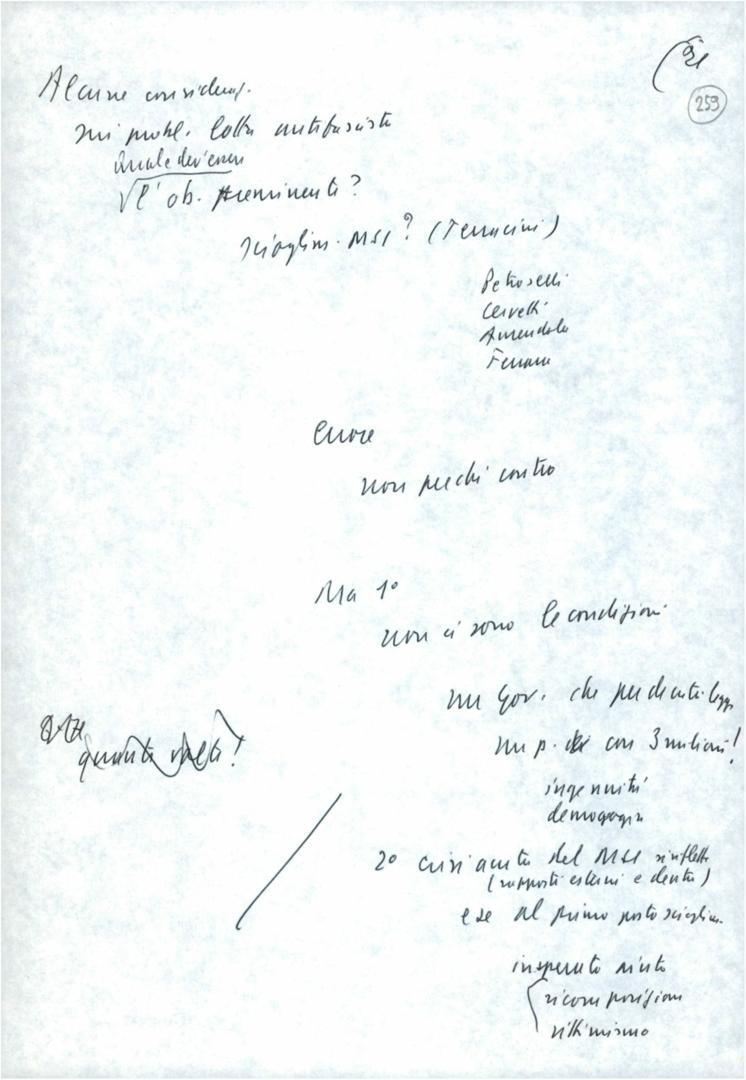 259
Alcune consideraz.
sui probl. lotta antifascista
Quale dev'essere
l'ob. preminente?
Scioglim. MSI? (Terracini)
Petroselli
Cervetti
Amendola
Ferrara
Errore
non perché contro
Ma 1°
non ci sono le condizioni
un Gov. che
un p. con 3 milioni!
ingenuità
demagogia
quante volte!
2° crisi acuta del MSI
(rapporti esterni e dentro)
e se al primo posto scioglim.
insperato aiuto
ricomposizione
vittimismo